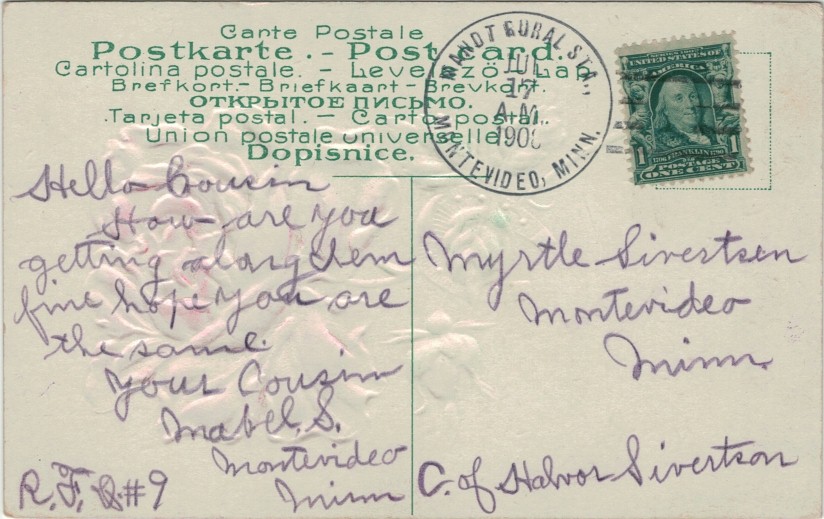 Carte Postale
Postkarte. - Post Card.
Cartolina postale. - Levelező Lap
Brefkort. - Briefkaart - Brevkort.
ОТКРЫТОЕ ПИСЬМО.
Tarjeta postal. - Carto postal.
Union postale universelle
Dopisnice.
MANDT RURAL STA.,
JUL
17
A.M.
190
MONTEVIDEO, MINN.
SERIES 1902
UNITED STATES OF
AMERICA
1 1706 FRANKLIN 1790 1
POSTAGE
ONE CENT
Hello Cousin
How are you
getting along
fine hope you are
the same.
Your Cousin
Mabel. S.
Montevideo
Minn
R.F.D.#9
Myrtle Sivertsen
Montevideo
Minn.
C. of Halvor Sivertson